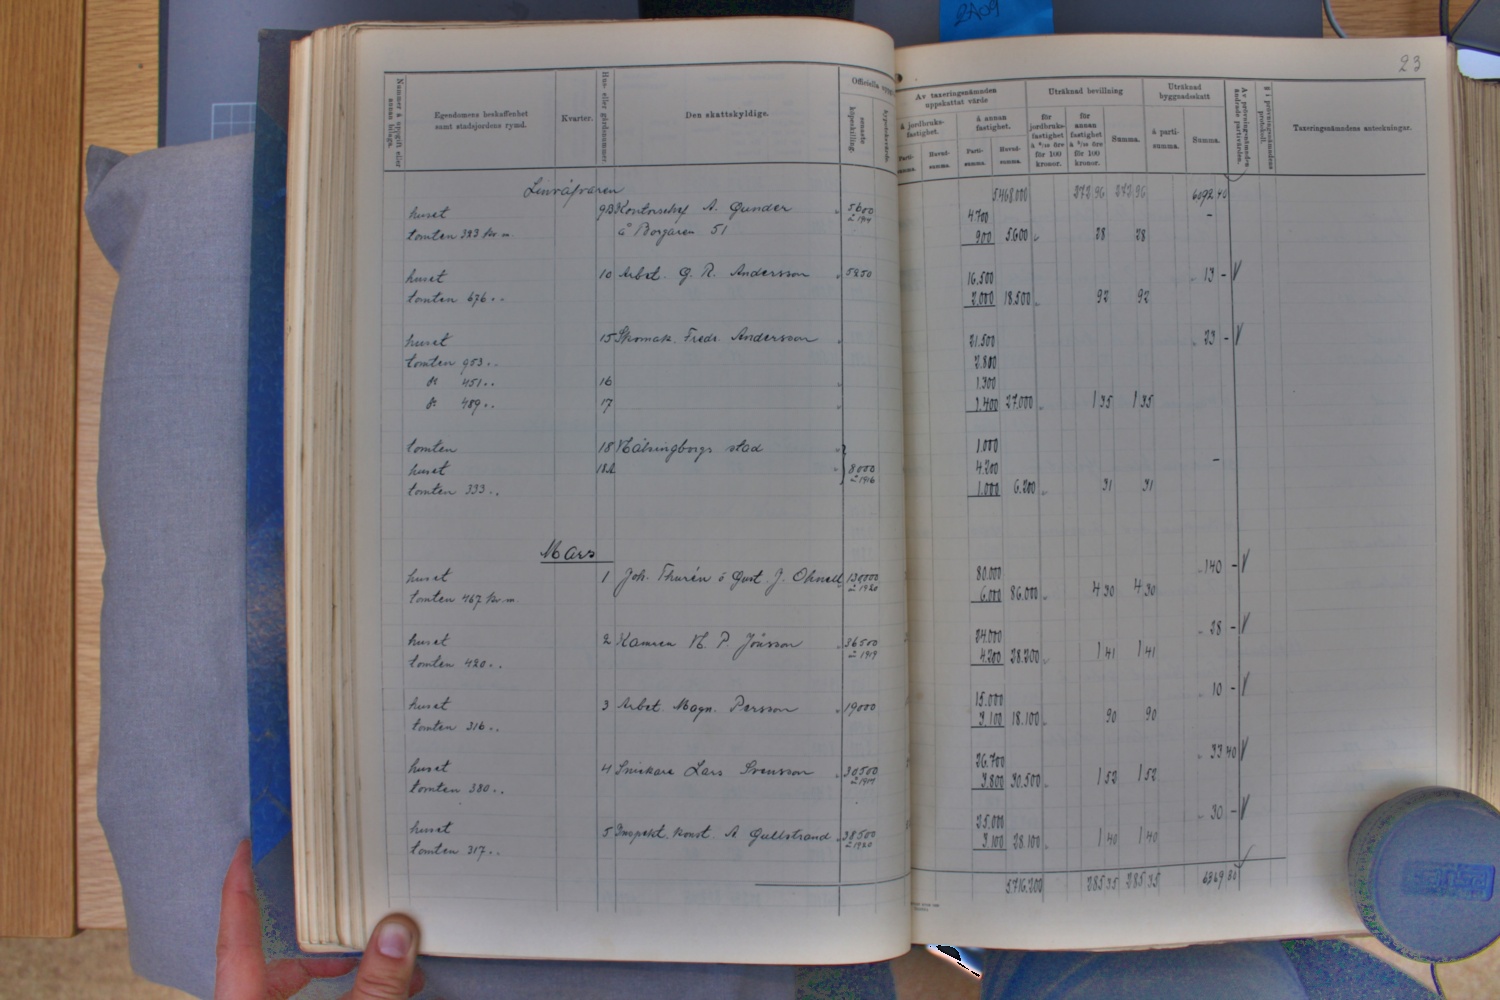 2A09
23
Nummer å uppgift eller annan bilaga.
Egendomens beskaffenhet samt stadsjordens rymd.
Kvarter.
Hus- eller gårdsnummer
Den skattskyldige.
Officiella
senaste köpeskilling.
Av taxeringsnämnden uppskattat värde
å jordbruksfastighet.
å annan fastighet.
Partisumma.
Huvudsumma.
Partisumma.
Huvudsumma.
Uträknad bevillning
för jordbruksfastighet à 6/10 öre för 100 kronor.
för annan fastighet à 5/10 öre för 100 kronor.
Summa.
Uträknad byggnadsskatt
à partisumma.
Summa.
Av prövningsnämnden ändrade partivärden.
§ i prövningsnämndens protokoll.
Taxeringsnämndens anteckningar.
5.468.000 272 96 272 96 6092 40
huset 9B Kontorschef A. Gunder 5600 4.700 -
tomten 323 kv m. å Borgaren 51 à 1914 900 5.600 28 28
huset 10 Arbet. G. R. Andersson 5250 16.500 13 -
tomten 676 " 2.000 18.500 92 92
huset 15 Skomak. Fredr. Andersson 21.500 23 -
tomten 953 " 2.800
d:o 451 " 16 1.300
d:o 489 " 17 1.400 27.000 1 35 1 35
tomten 18 Hälsingborgs stad 1.000
huset 18A 8000 4.200 -
tomten 333 " à 1916 1.000 6.200 31 31
Mars
huset 1 Joh. Thurén o Gust. J. Ohnell 130000 80.000 140 -
tomten 467 kv m. à 1920 6.000 86.000 4 30 4 30
huset 2 Kamrer N. P. Jönsson 36500 24.000 28 -
tomten 420 " à 1919 4.200 28.200 1 41 1 41
huset 3 Arbet. Magn. Persson 19000 15.000 10 -
tomten 316 " 3.100 18.100 90 90
huset 4 Snickare Lars Svensson 30500 26.700 33 40
tomten 380 " 3.800 30.500 1 52 1 52
huset 5 Inspekt. Konst. A Gullstrand 38500 25.000 30 -
tomten 317 " à 1920 3.100 28.100 1 40 1 40
5.716.200 285 35 285 35